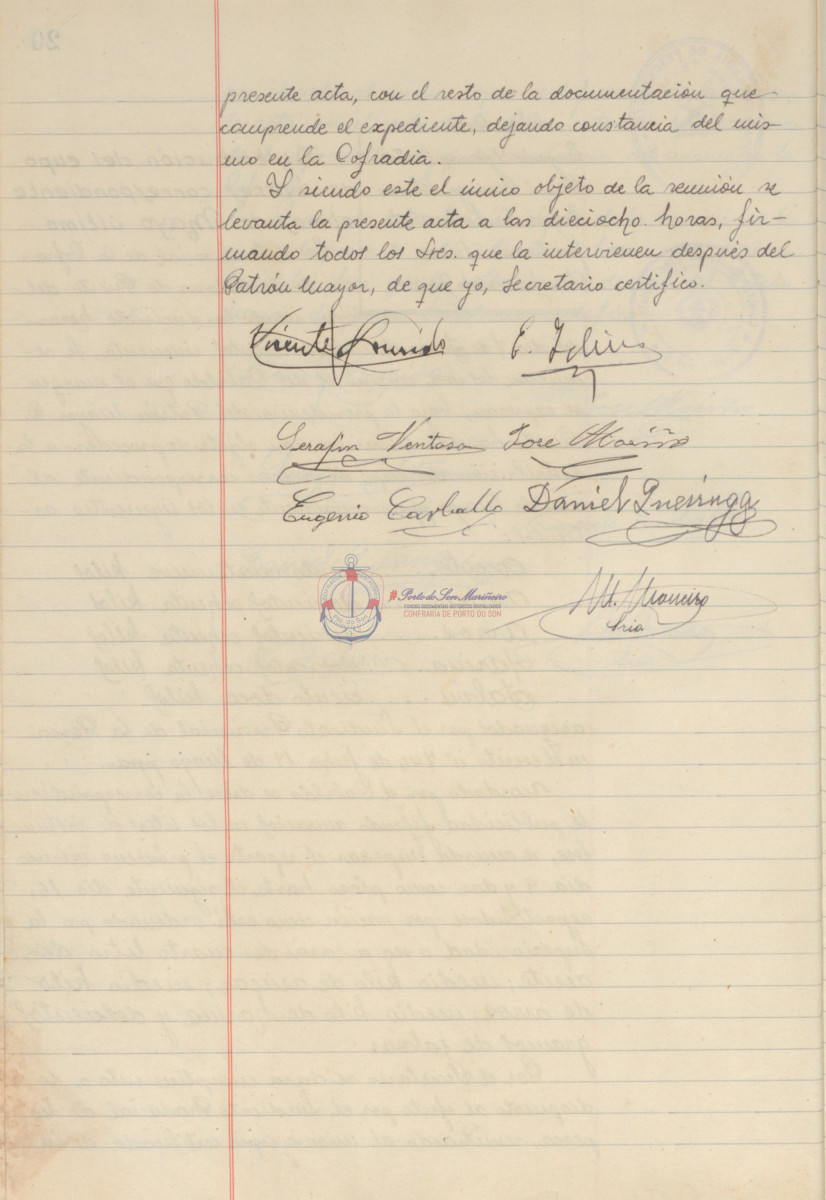 presente acta, con el resto de la documentación que
comprende el expediente, dejando constancia del mis-
mo en la Cofradia.
Y siendo este el único objeto de la reunión se
levanta la presente acta a las dieciocho horas, fir-
mando todos los Sres. que la intervienen después del
Patrón Mayor, de que yo, Secretario certifico.
Vicente
E.
Serafin Ventosa Jose
Eugenio Carballo Daniel
#Porto do Son Mariñeiro
FONDOS DOCUMENTAIS HISTÓRICOS DIXITALIZADOS
CONFRARÍA DE PORTO DO SON